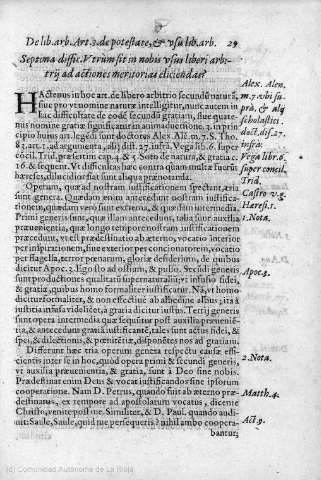 De lib. arb. Art. 3. de potestate, & vsu lib. arb. 29
Septima diffic. Vtrum sit in nobis vsus liberi arbi-
trij ad actiones meritorias eliciendas?
HActenus in hoc art. de libero arbitrio secundũ naturã,
siue pro vt nomine naturæ intelligitur, nunc autem in
hac difficultate de eodẽ secundũ gratiam, siue quate-
nus nomine gratiæ significatur in animaduersione. 2. in prin
cipio huius art. legẽdi sunt doctores Alex. Ale. m. 7. S. Tho.
83. art. 1. ad argumenta, alij dist. 27. infra. Vega lib. 6. super
cõcil. Trid. præsertim cap. 4. & 5. Soto de natura, & gratia c.
16. & sequent. Vt difficultas hæc contra quam multæ fuerũt
hæreses, dilucidior fiat sunt aliqua prænotanda.
Operum, quæ ad nostram iustificationem spectant, tria
sunt genera. Quædam enim antecedunt nostram iustifica-
tionem, quædam vero sunt extrema, & quædam intermedia.
Primi generis sunt, quæ illam antecedunt, talia sunt auxilia
præuenientia, quæ longo tempore nostram iustificationem
præcedunt, vt est prædestinatio ab æterno, vocatio interior
per inspirationem, siue exterior per concionatorem, vocatio
per flagella, terror pœnarum, gloriæ desiderium, de quibus
dicitur Apoc. 3. Ego sto ad ostium, & pulso. Secũdi generis
sunt productiones qualitatũ supernaturaliũ: vt infusio fidei,
& gratiæ, quibus homo formaliter iustificatur. Nã, vt homo
dicitur formaliter, & non effectiuè ab albedine albus; ita à
iustitia infusa videlicet, à gratia dicitur iustus. Tertij generis
sunt opera intermedia quæ sequũtur post auxilia præuenië-
tia, & antecedunt gratiã iustificantẽ, tales sunt actus fidei, &
spei, & dilectionis, & pœnitẽtiæ, disponẽtes nos ad gratiam.
Differunt hæc tria operum genera respectu causæ effi-
cientis inter se in hoc, quod opera primi & secundi generis,
vt auxilia præuenientia, & gratia, sunt à Deo sine nobis.
Prædestinat enim Deus & vocat iustificandos sine ipsorum
cooperatione. Nam D. Petrus, quando fuit ab æterno præ-
destinatus, ex tempore ad apostolatum vocatus, dicente
Christo, venite post me. Similiter, & D. Paul. quando audi-
uit: Saule, Saule, quid me persequeris? nihil ambo coopera-
bantur,
Alex. Alen.
m. 7. vbi su-
prà, & alij
scholastici.
doct. dist. 27.
infrà.
Vega lib. 6.
super concil.
Trid.
Castro v. g.
Hæres. 1.
1. Nota.
Apoc. 3.
2. Nota.
Matth. 4.
Act. 9.
(c) Comunidad Autónoma de La Rioja